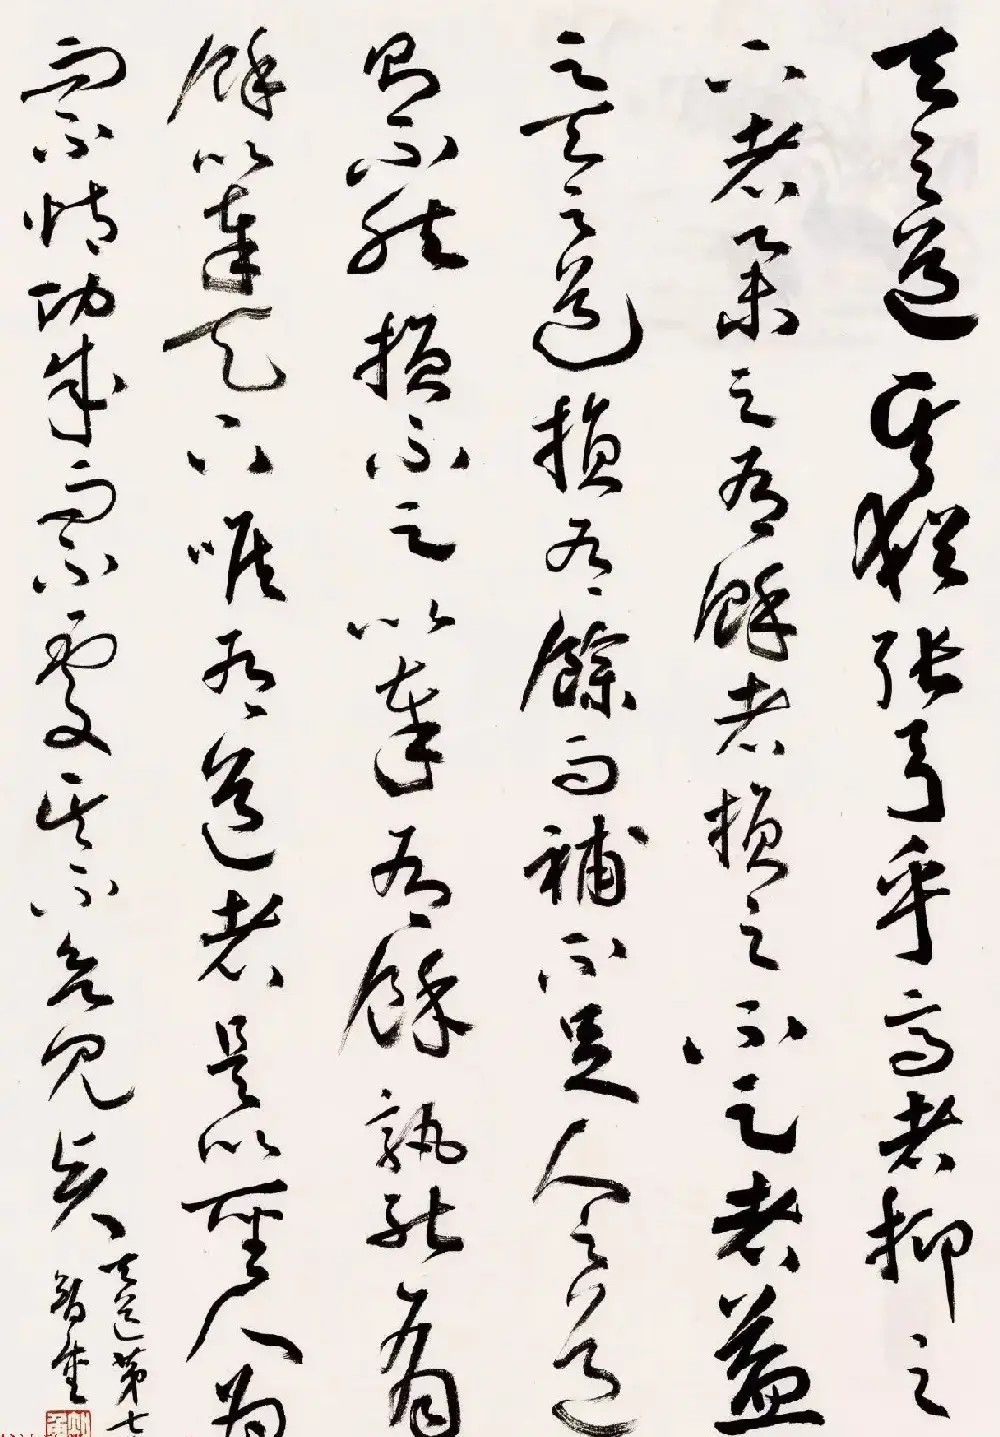 天之道其猶張弓乎高者抑之
下者舉之有餘者損之不足者益
之天之道損有餘而補不足人之道
則不然損不足以奉有餘孰能有
餘以奉天下唯有道者是以聖人為
而不恃功成而不處其不欲見賢
天道第七